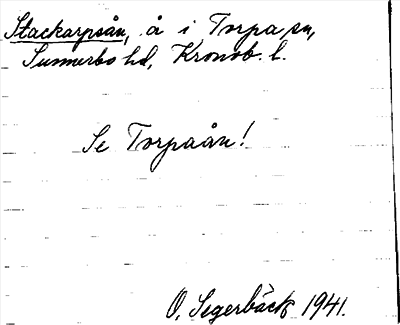 Stackarpsån, å i Torpa sn,
Sunnerbo hd, Kronob. l.
Se Torpaån!
O. Segerbäck 1941.